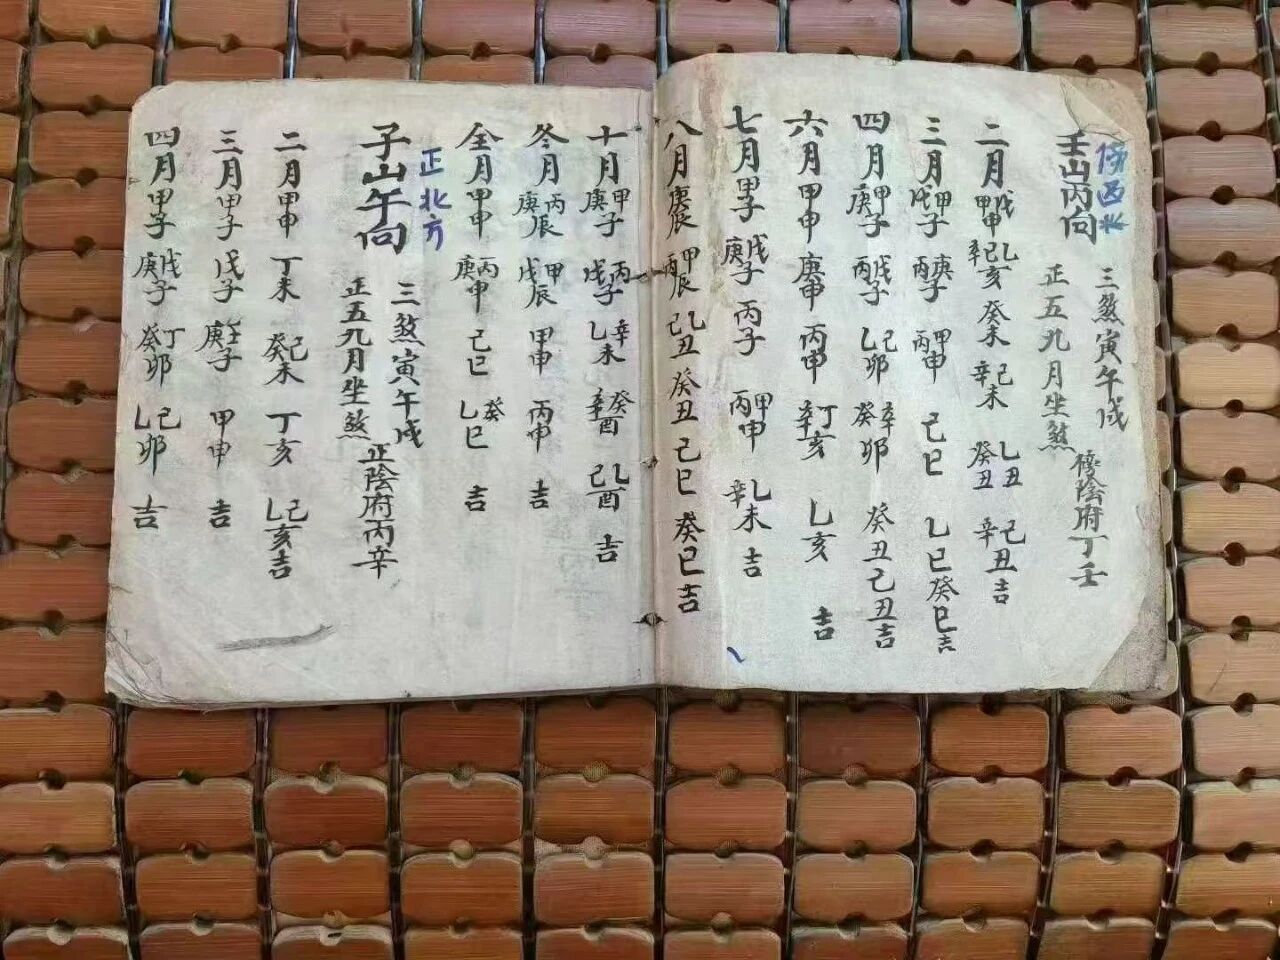 傍西北
壬山丙向
三煞寅午戌
正五九月坐煞
傍陰府丁壬
二月甲戌甲申己乙辛亥癸未己辛未乙癸丑己辛丑吉
三月甲戌子庚丙子甲丙申己巳乙巳癸巳吉
四月甲庚子戊丙子己乙卯辛癸卯癸丑己丑吉
六月甲申庚申丙申丁辛亥乙亥吉
七月甲子戊庚子丙子甲丙申乙辛未吉
八月庚辰甲丙辰乙己丑癸丑己巳癸巳吉
十月甲庚子丙戊子辛乙未癸辛酉乙己酉吉
冬月丙庚辰甲戊辰甲申丙申吉
全月甲申丙庚申己巳癸乙巳吉
正北方
子山午向
三煞寅午戌
正五九月坐煞
正陰府丙辛
二月甲申丁未己癸未丁亥己乙亥吉
三月甲子戊子壬庚子甲申吉
四月甲子戊庚子丁癸卯己乙卯吉